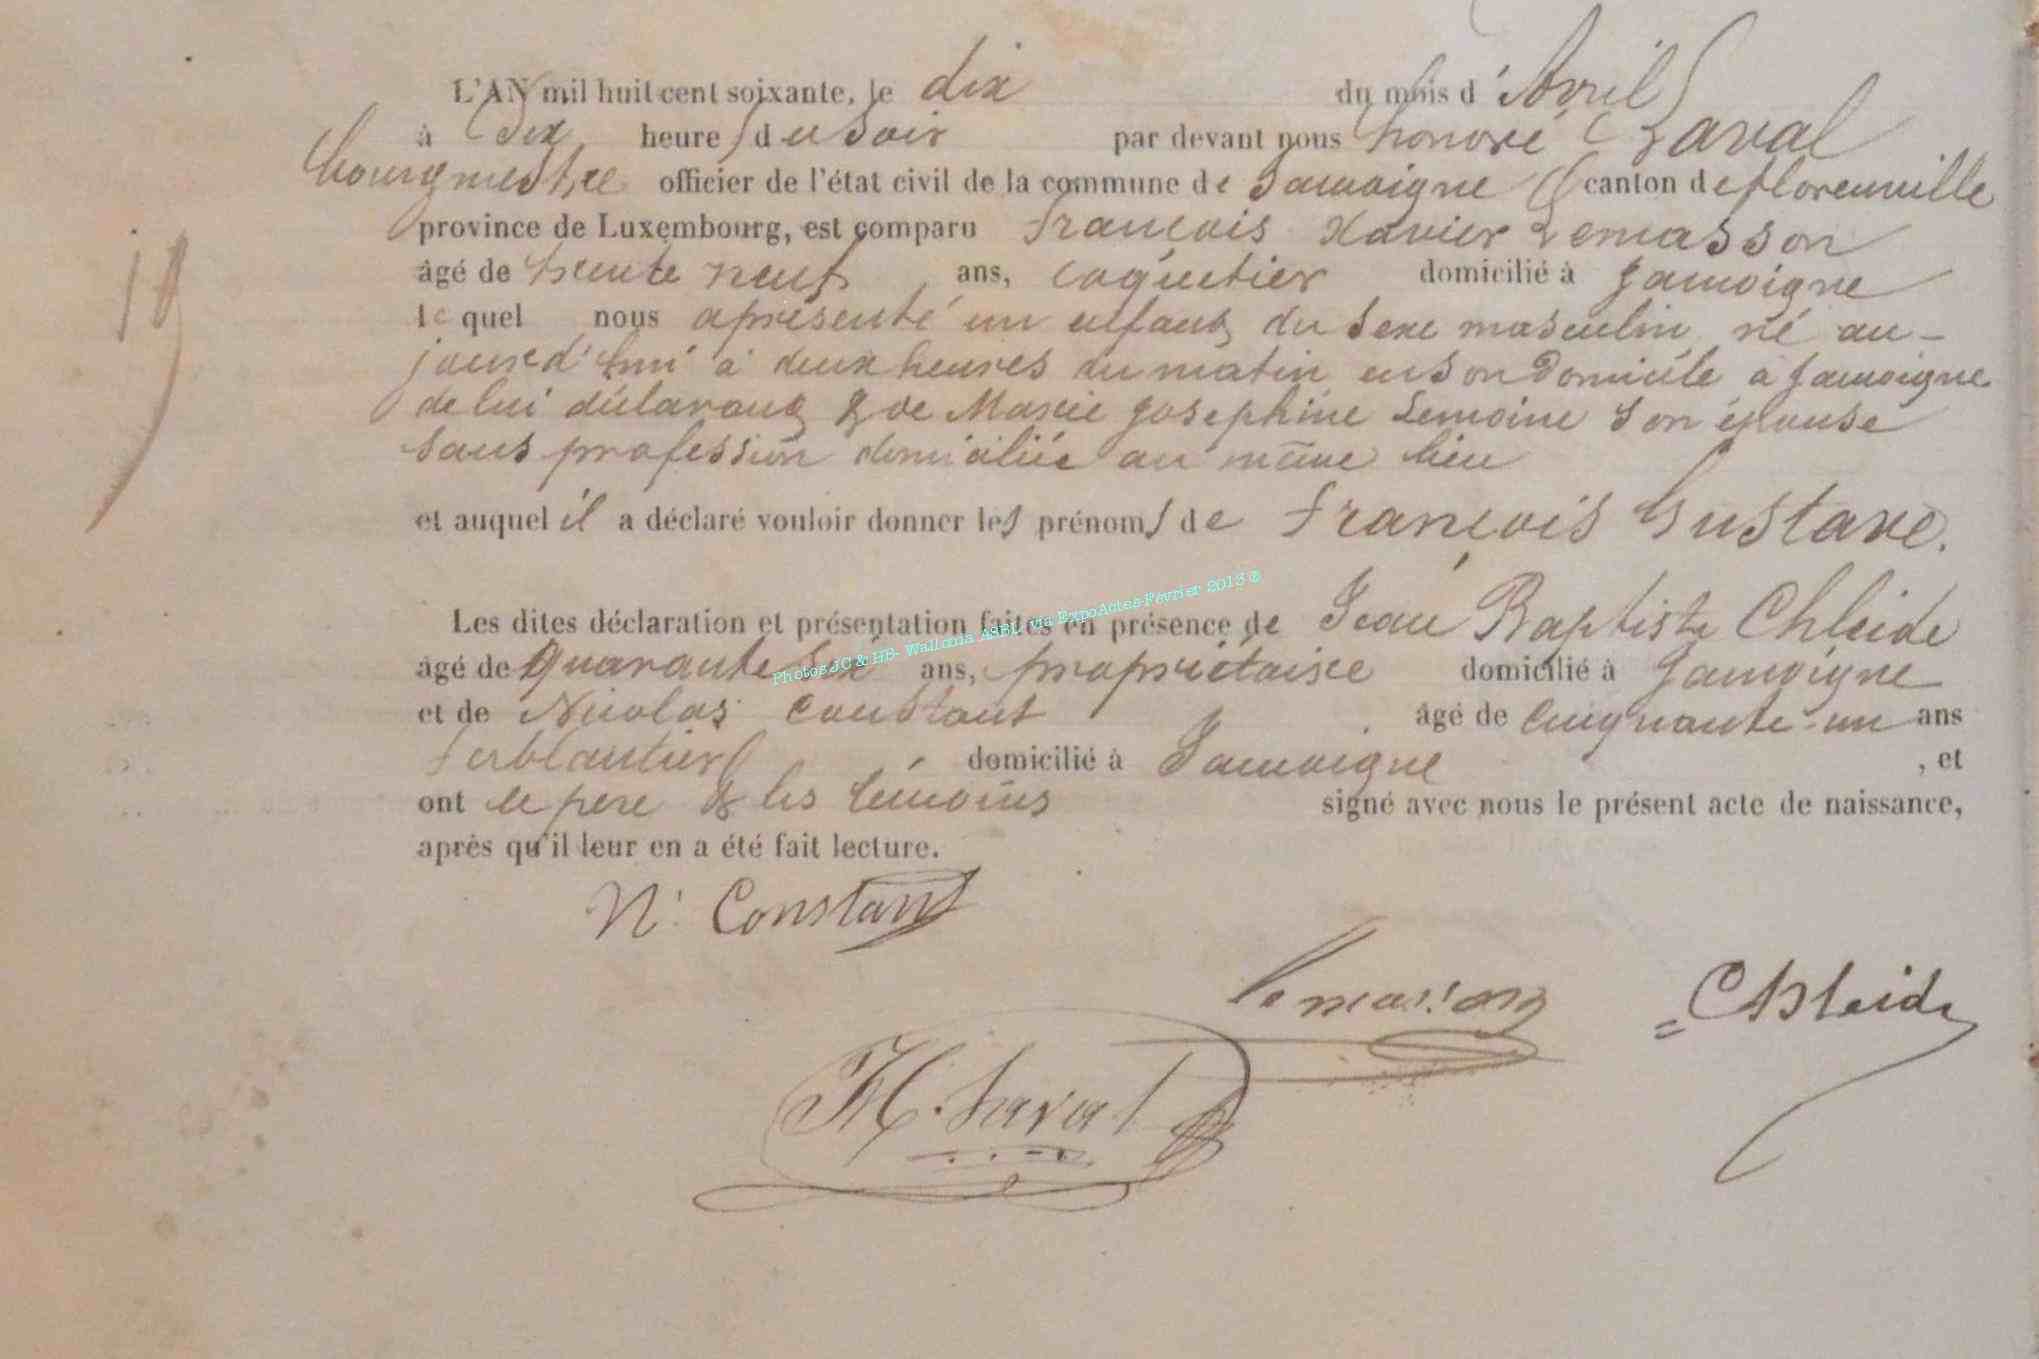 L'AN mil huit cent soixante, le dix du mois d'Avril
à Six heures du Soir par devant nous honoré Laval
bourgmestre officier de l'état civil de la commune de Jamoigne canton de florenville
province de Luxembourg, est comparu françois Xavier Lemasson
âgé de trente neuf ans, coquetier domicilié à Jamoigne
lequel nous a présenté un enfant du Sexe masculin né au-
jourd'hui à deux heures du matin en son Domicile à Jamoigne
de lui déclarant & de Marie Josephine Lemoine Son épouse
Sans profession domiciliée au même lieu
et auquel il a déclaré vouloir donner les prénoms de François Gustave.
Les dites déclaration et présentation faites en présence de Jean Baptiste Chleide
âgé de quarante ans, propriétaire domicilié à Jamoigne
et de Nicolas Constant âgé de Cinquante-un ans
ferblantier domicilié à Jamoigne, et
ont le père & les témoins signé avec nous le présent acte de naissance,
après qu'il leur en a été fait lecture.
N. Constant
Lemasson
Chleide
H. Laval
Photos JC & HB- Wallonia ASBL via ExpoActes-Février 2013 ©